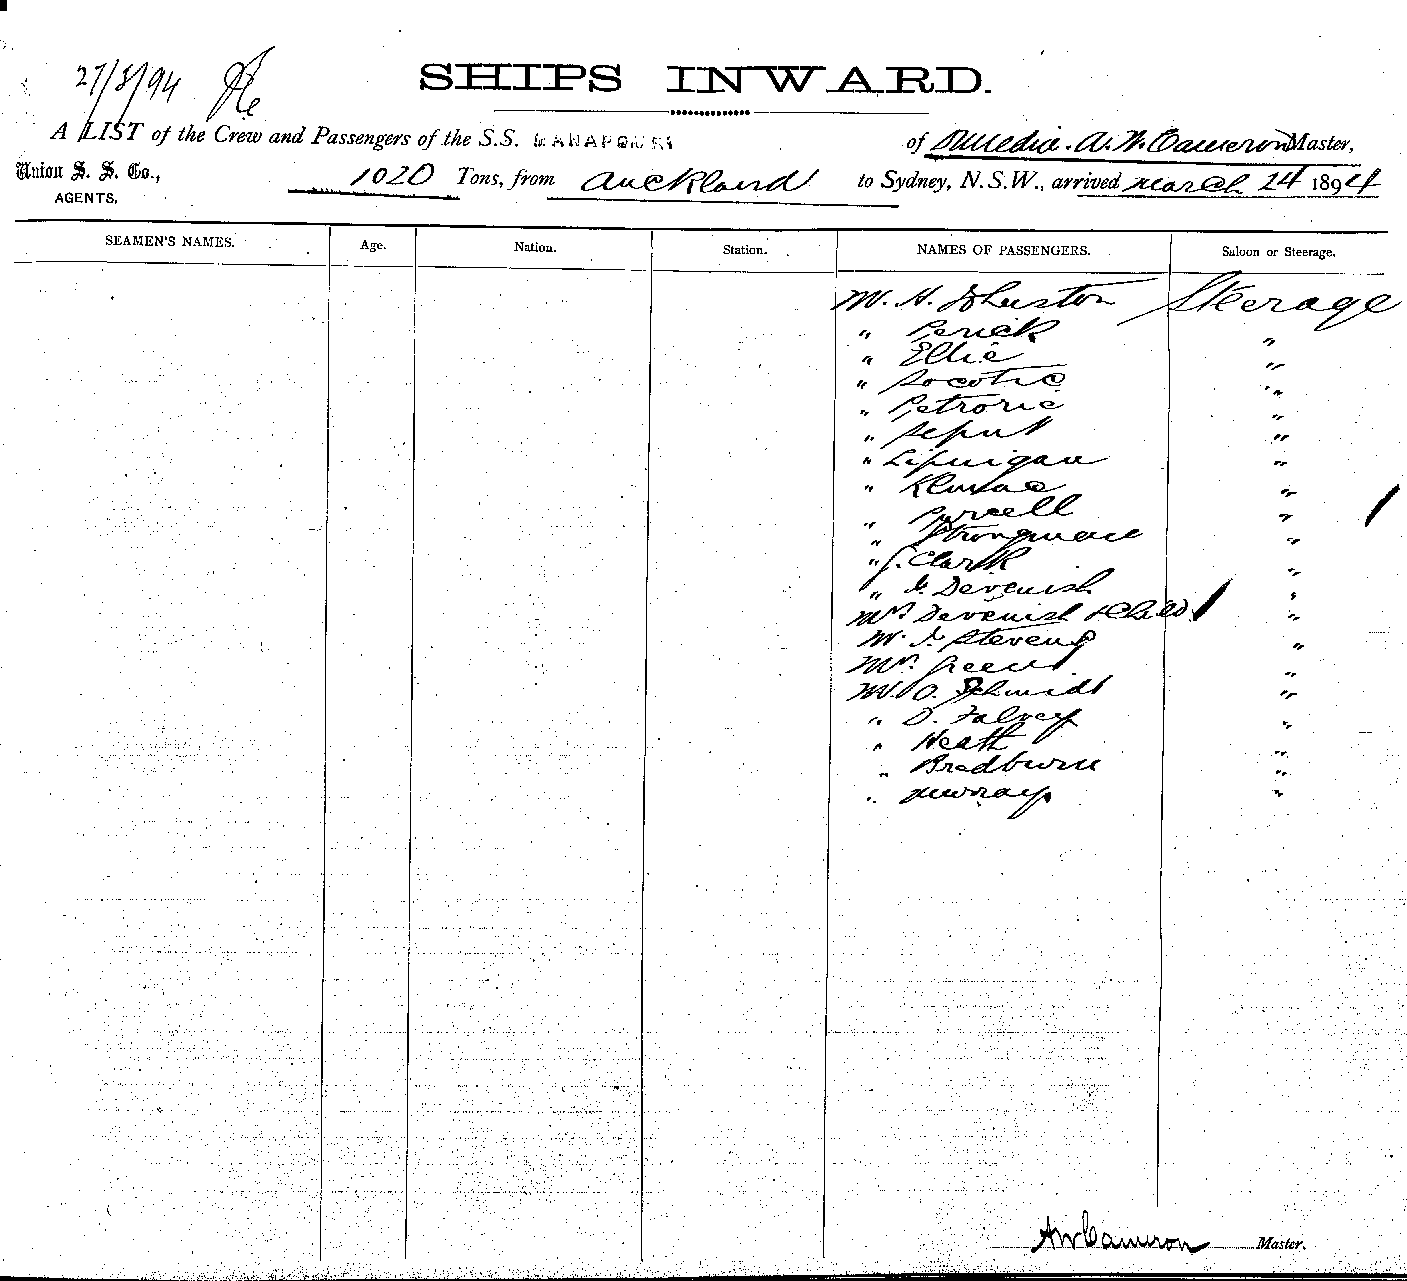 27/3/94
SHIPS INWARD.
A LIST of the Crew and Passengers of the S.S. MANAPOURI of Dunedin. A. W. Cameron Master,
Union S. S. Co., AGENTS, 1020 Tons, from Auckland to Sydney, N.S.W., arrived March 24 1894
SEAMEN'S NAMES. Age. Nation. Station. NAMES OF PASSENGERS. Saloon or Steerage.
Mr. H. Johnston Steerage
" "
" Ellie "
" "
" Petrovic "
" "
" "
" "
" Purcell "
" "
" J. Clark "
" J. Devenish "
Mrs Devenish & Child "
Mr J. Stevens "
Green "
Mr. O. Schmidt "
" D. Falvey "
" Heath "
" Bradburn "
" Murray "
AW Cameron Master.